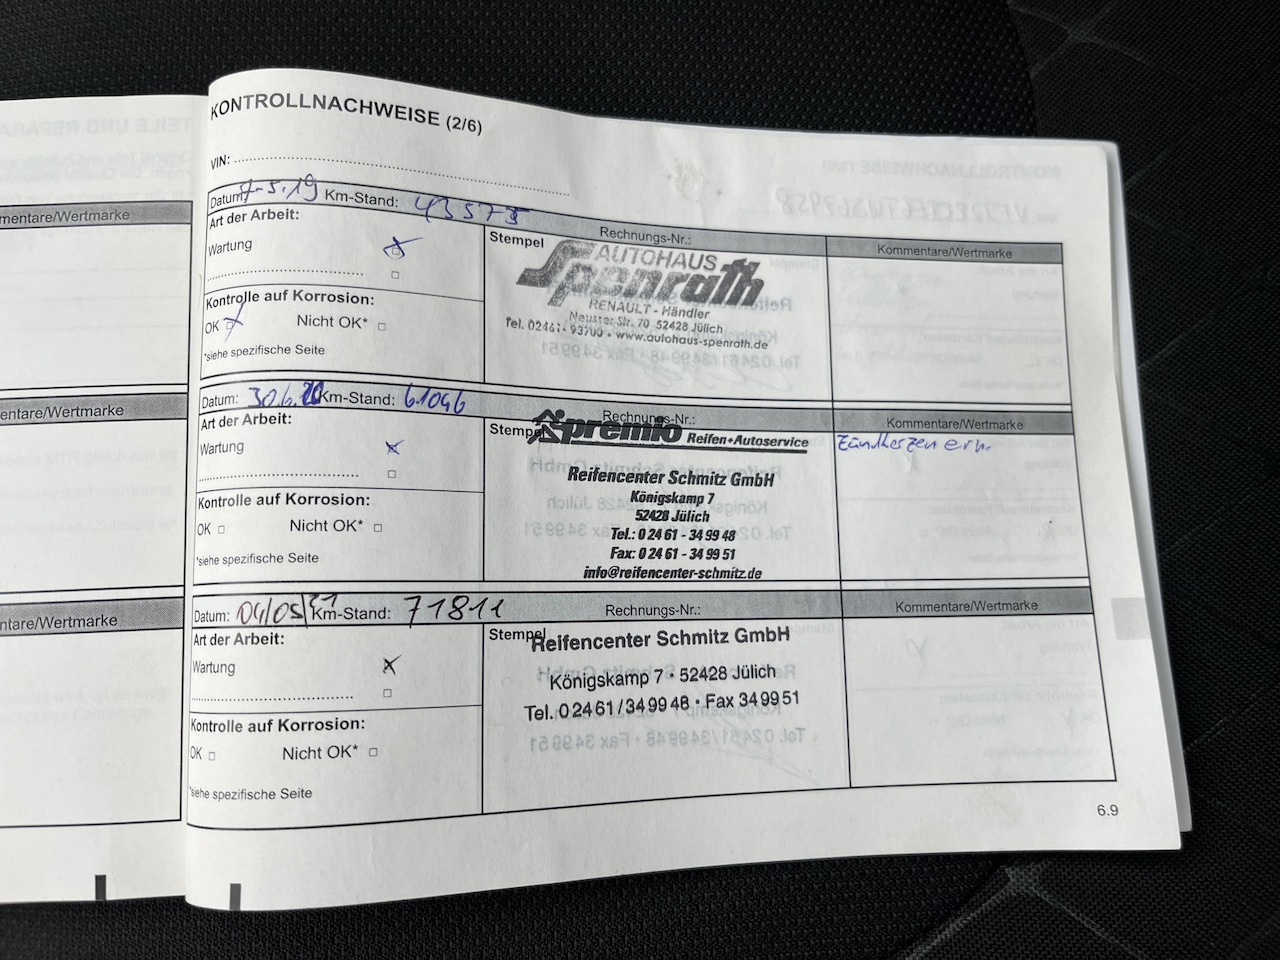 KONTROLLNACHWEISE (2/6)
VIN:
Datum: 7-5.19 Km-Stand: 43573
Rechnungs-Nr.:
Kommentare/Wertmarke
Art der Arbeit:
Wartung
Kontrolle auf Korrosion:
OK Nicht OK*
*siehe spezifische Seite
Stempel
AUTOHAUS
Spenrath
RENAULT - Händler
Neusser Str. 70 52428 Jülich
Tel. 02461 - 93700 • www.autohaus-spenrath.de
Datum: 30.6.20 Km-Stand: 61096
Rechnungs-Nr.:
Kommentare/Wertmarke
Art der Arbeit:
Wartung
Kontrolle auf Korrosion:
OK Nicht OK*
*siehe spezifische Seite
Stempel
premio Reifen+Autoservice
Reifencenter Schmitz GmbH
Königskamp 7
52428 Jülich
Tel.: 0 24 61 - 34 99 48
Fax: 0 24 61 - 34 99 51
info@reifencenter-schmitz.de
Zündkerzen ern.
Datum: 04/05/21 Km-Stand: 71811
Rechnungs-Nr.:
Kommentare/Wertmarke
Art der Arbeit:
Wartung
Kontrolle auf Korrosion:
OK Nicht OK*
*siehe spezifische Seite
Stempel
Reifencenter Schmitz GmbH
Königskamp 7 • 52428 Jülich
Tel. 0 24 61 / 34 99 48 • Fax 34 99 51
6.9
mentare/Wertmarke
entare/Wertmarke
ntare/Wertmarke